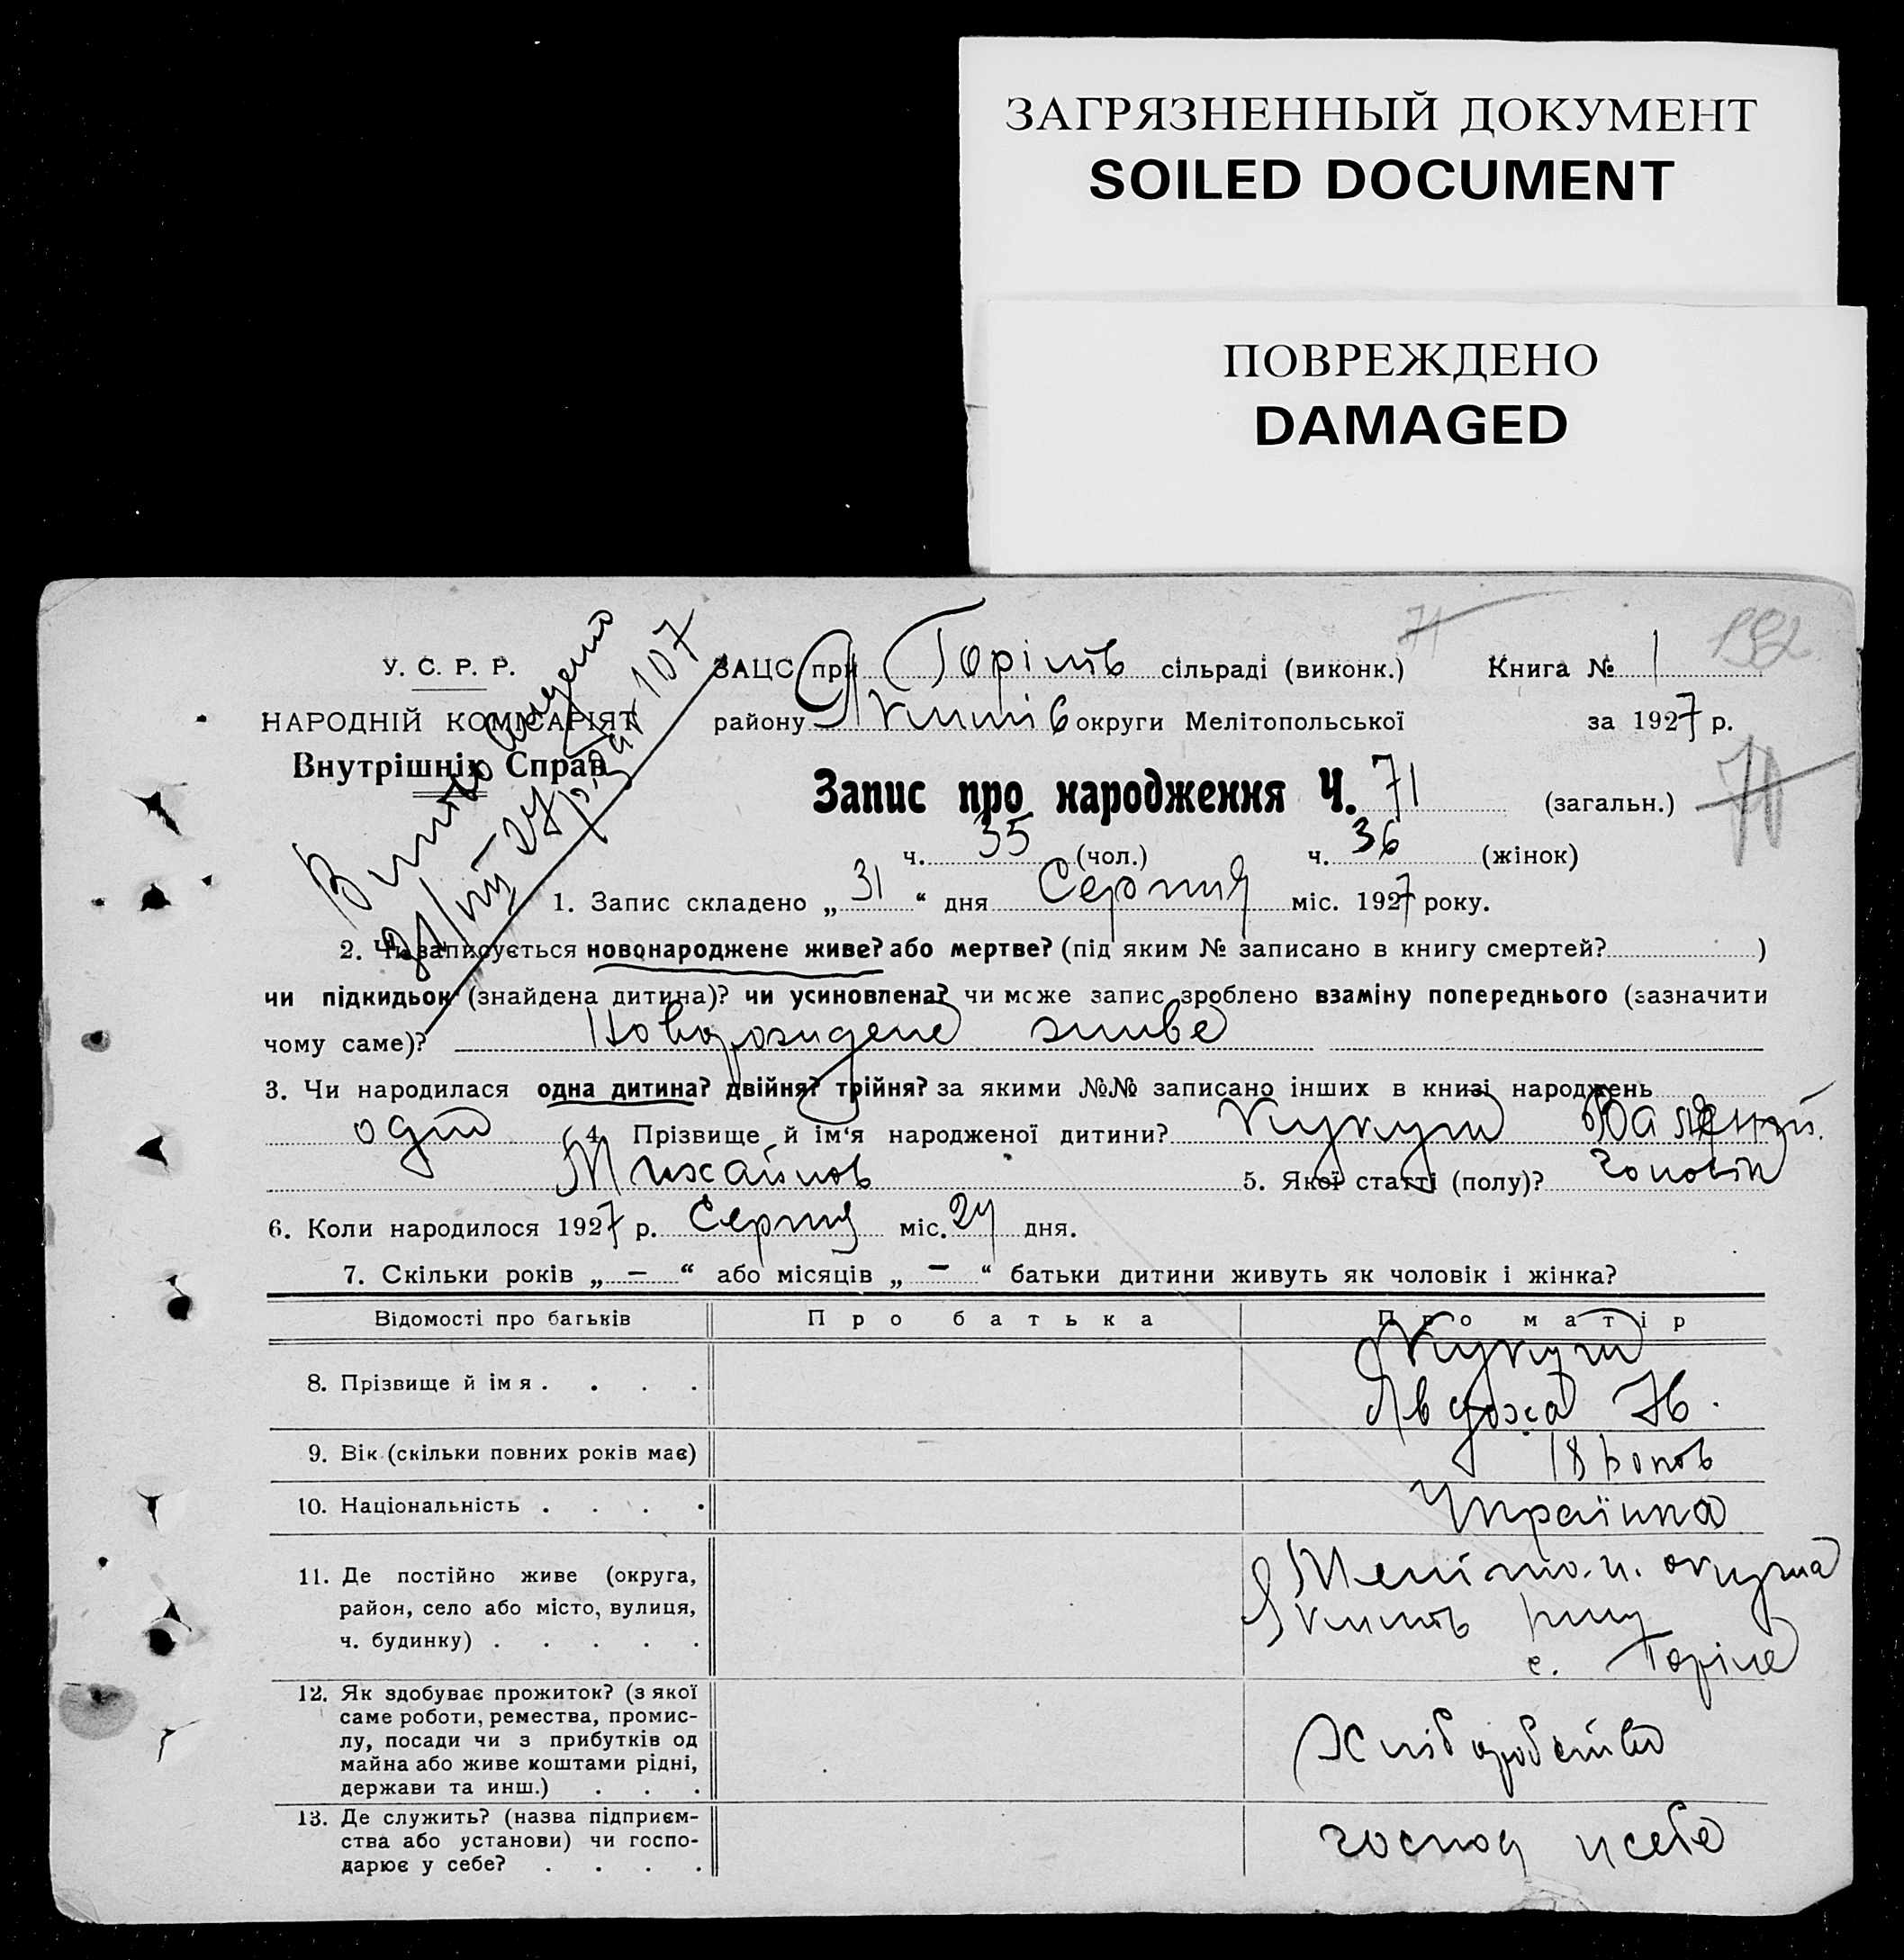 ЗАГРЯЗНЕННЫЙ ДОКУМЕНТ
SOILED DOCUMENT
ПОВРЕЖДЕНО
DAMAGED
71
192
У. С. Р. Р.
НАРОДНІЙ КОМІСАРІЯТ
Внутрішніх Справ
107
ЗАЦС при Горілів сільраді (виконк.) Книга № 1
району Якимів округи Мелітопольської за 1927 р.
Запис про народження Ч. 71 (загальн.) 70
ч. 35 (чол.) ч. 36 (жінок)
1. Запис складено „31“ дня Серпня міс. 1927 року.
2. Чи записується новонароджене живе? або мертве? (під яким № записано в книгу смертей? )
чи підкидьок (знайдена дитина)? чи усиновлена? чи може запис зроблено взаміну попереднього (зазначити
чому саме)? живе
3. Чи народилася одна дитина? двійня? трійня? за якими №№ записано інших в книзі народжень
одно 4. Прізвище й ім‘я народженої дитини? Кукуш
Михайлов 5. Якої статті (полу)? чоловік
6. Коли народилося 1927 р. Серпня міс. 24 дня.
7. Скільки років „ — “ або місяців „ — “ батьки дитини живуть як чоловік і жінка?
Відомості про батьків Про батька Про матір
8. Прізвище й ім я . . . . Кукуш
Явдоха Ив.
9. Вік (скільки повних років має) 18 роков
10. Національність . . . . Українка
11. Де постійно живе (округа, Меліто.п. округа
район, село або місто, вулиця, Якимів
ч. будинку) . . . . . с. Горіле
12. Як здобуває прожиток? (з якої
саме роботи, ремества, промис-
лу, посади чи з прибутків од Хліборобство
майна або живе коштами рідні,
держави та инш.) . . .
13. Де служить? (назва підприєм-
ства або установи) чи госпо- господ у себе
дарює у себе? . . . .